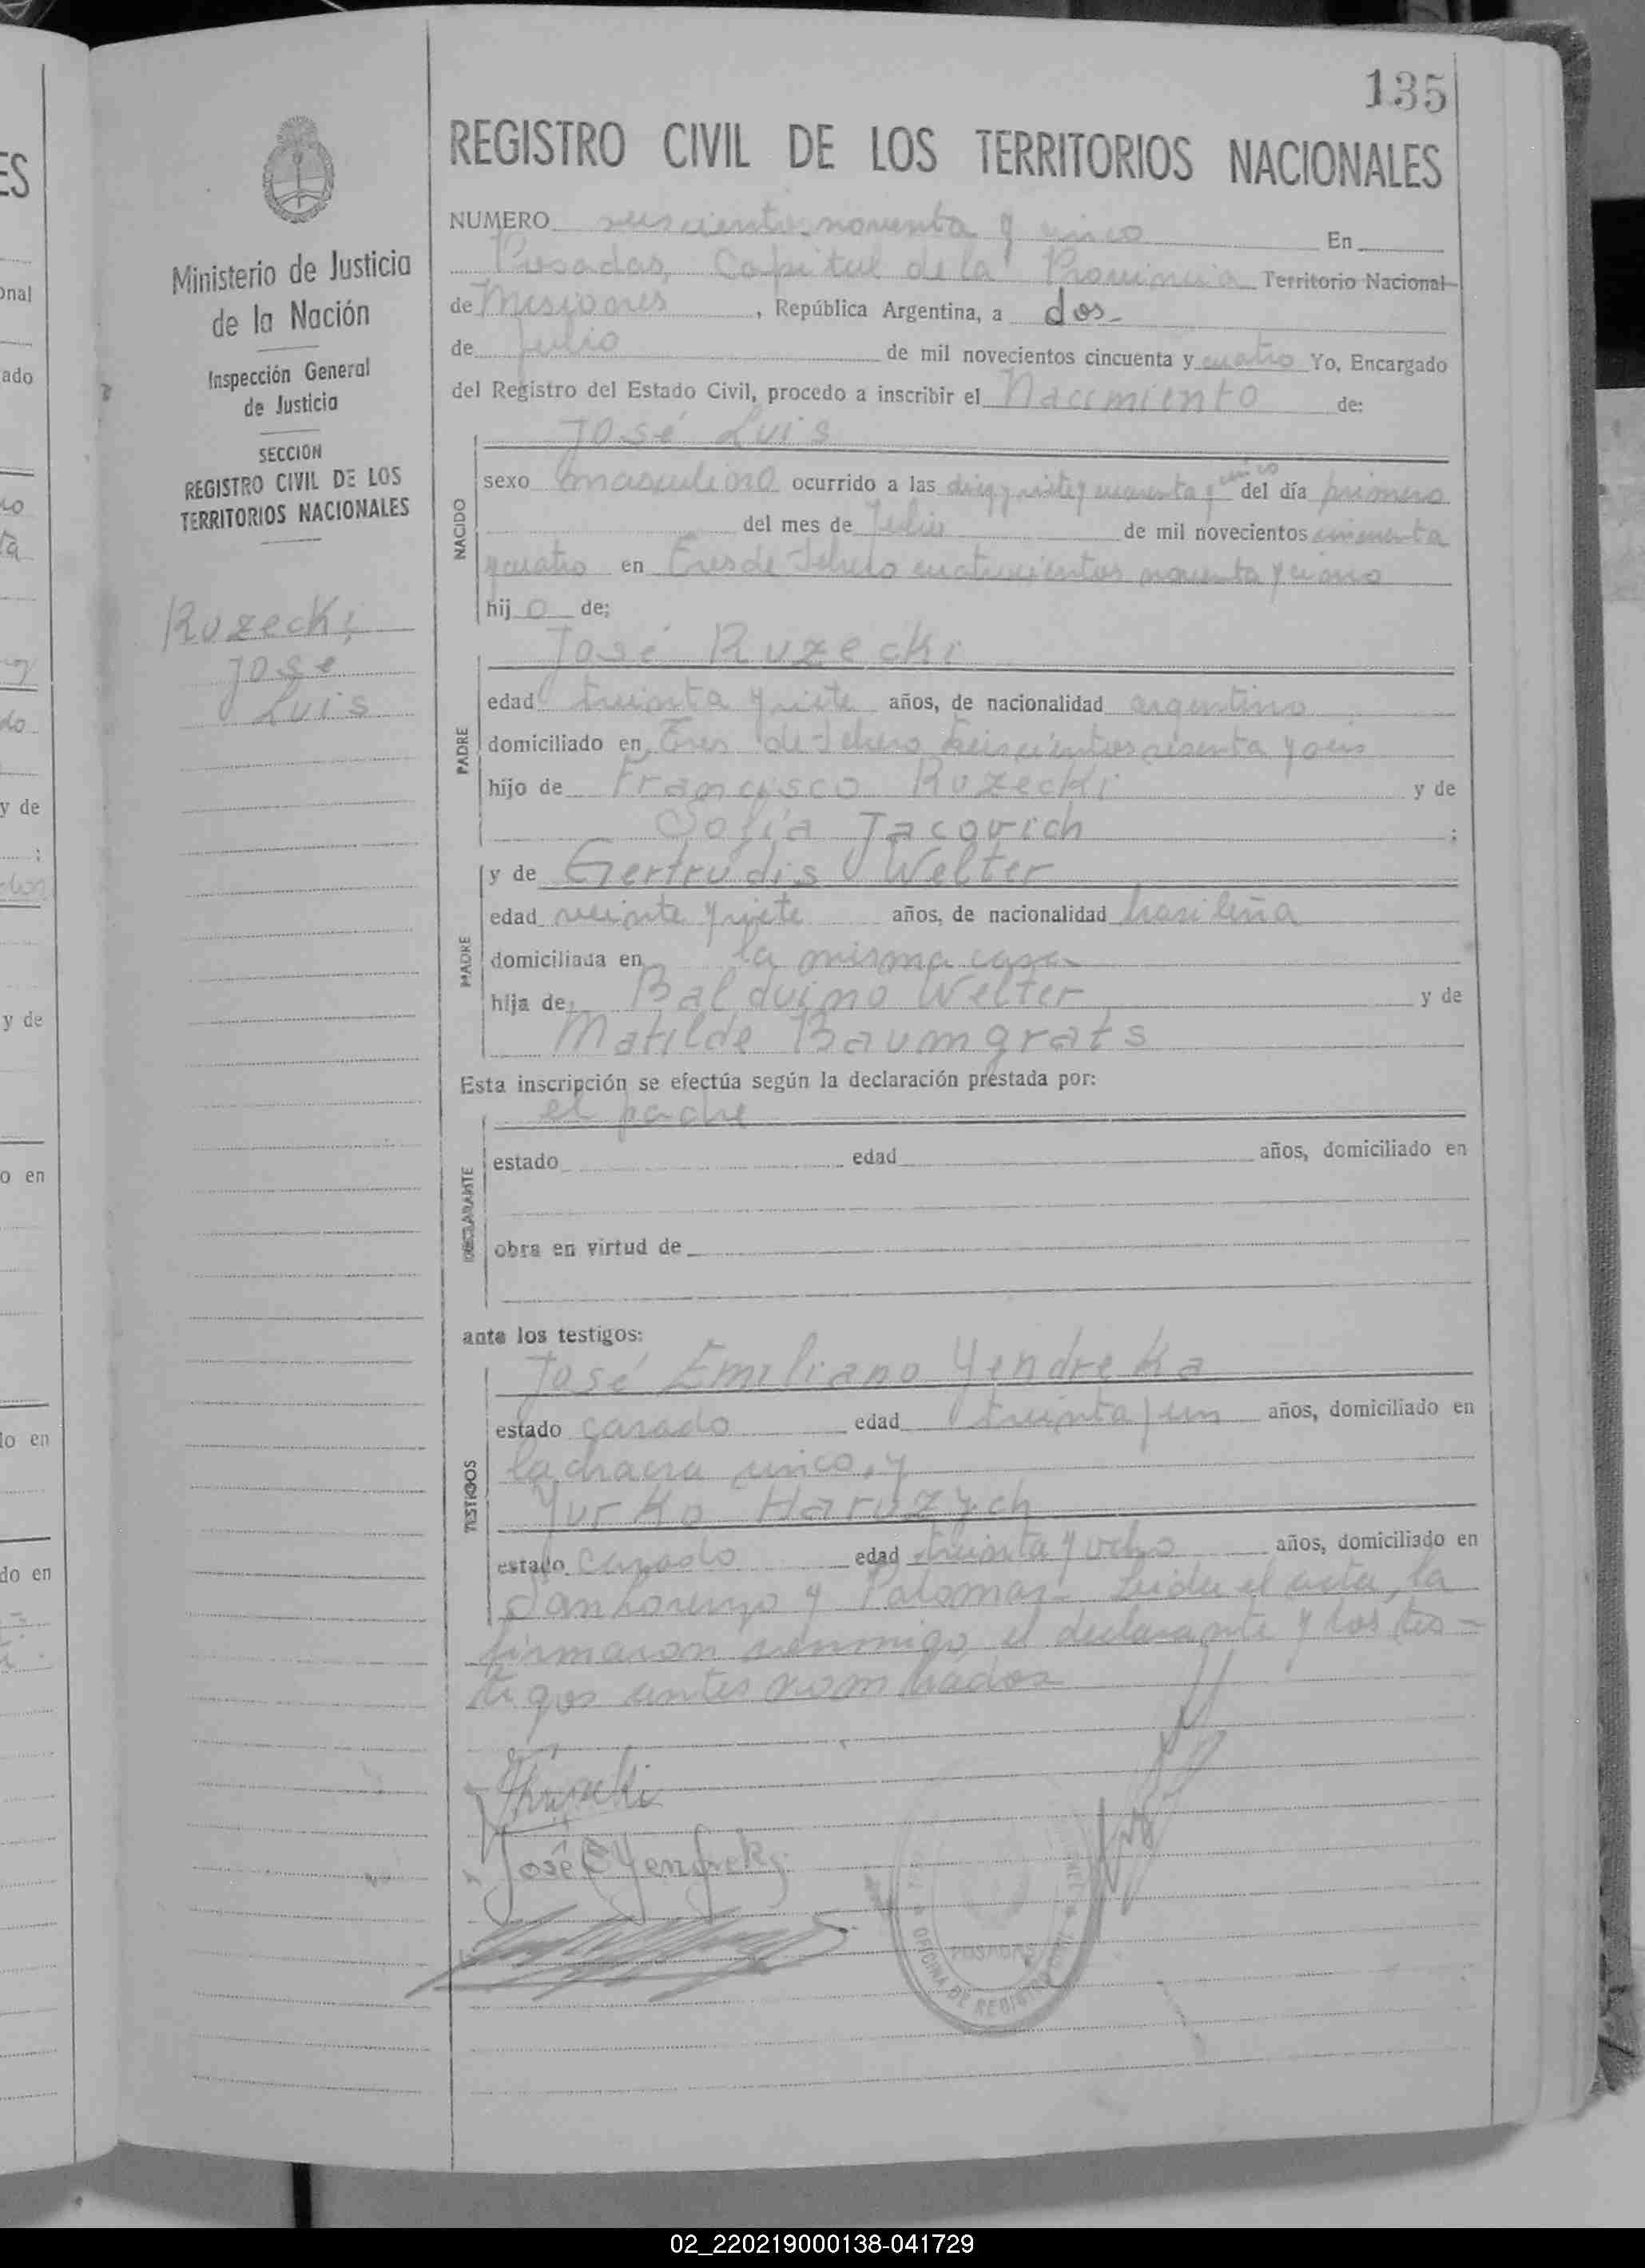 135
REGISTRO CIVIL DE LOS TERRITORIOS NACIONALES
Ministerio de Justicia
de la Nación
Inspección General
de Justicia
SECCION
REGISTRO CIVIL DE LOS
TERRITORIOS NACIONALES
Ruzecki,
José
Luis
NUMERO seiscientos noventa y cinco En
Posadas, Capital de la Provincia Territorio Nacional
de Misiones, República Argentina, a dos
de Julio de mil novecientos cincuenta y cuatro Yo, Encargado
del Registro del Estado Civil, procedo a inscribir el Nacimiento de:
José Luis
NACIDO
sexo masculino ocurrido a las diez y siete y cuarenta y cinco del día primero
del mes de Julio de mil novecientos cincuenta
y cuatro en Tres de Febrero cuatrocientos noventa y cinco
hij o de;
José Ruzecki
PADRE
edad treinta y siete años, de nacionalidad argentino
domiciliado en Tres de Febrero seiscientos sesenta y
hijo de Francisco Ruzecki y de
Sofía Jacovich ;
MADRE
y de Gertrudis Welter
edad veinte y siete años, de nacionalidad brasileña
domiciliada en la misma casa
hija de Balduino Welter y de
Matilde Baumgrats
Esta inscripción se efectúa según la declaración prestada por:
el padre
DECLARANTE
estado edad años, domiciliado en
obra en virtud de
ante los testigos:
José Emiliano Yendreka
TESTIGOS
estado casado edad treinta y un años, domiciliado en
la chacra cinco, y
Yurko Haruzych
estado casado edad treinta y ocho años, domiciliado en
San Lorenzo y Palomar. Leída el acta, la
firmaron conmigo, el declarante y los tes-
tigos antes nombrados
José E Yendreka
OFICINA DE REGISTRO CIVIL
POSADAS
02_220219000138-041729